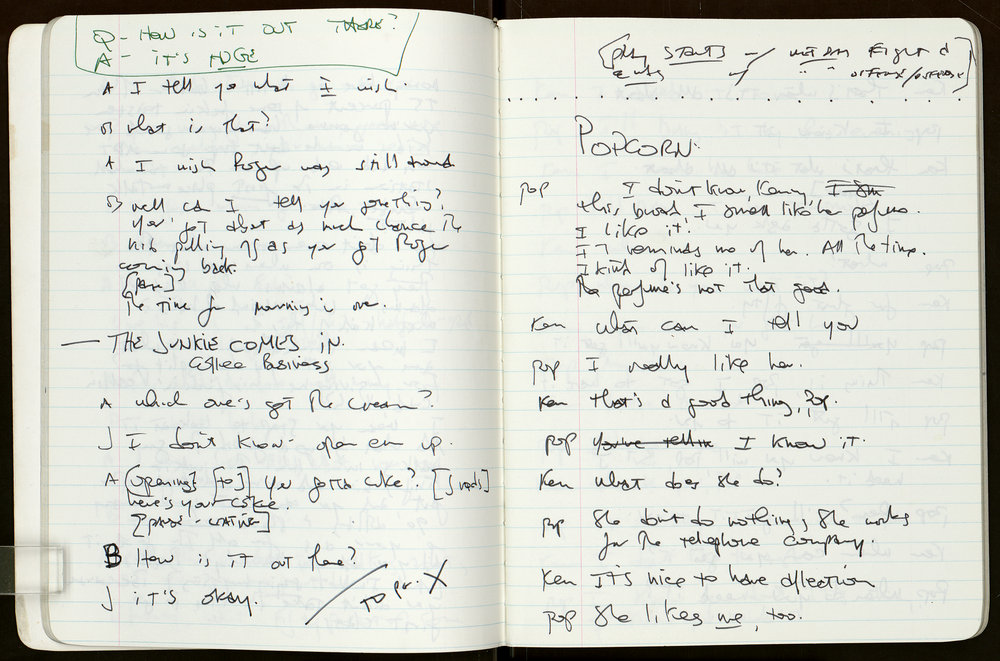 Q - HOW IS IT OUT THERE?
A - IT'S HUGE
A I tell you what I wish.
B what is that?
A I wish Roger was still around
B well can I tell you something?
You got about as much chance the
wish pulling off as you got Roger
coming back.
[pause]
The time for mourning is over.
— THE JUNKIE COMES IN.
Coffee Business
A which one's got the cream?
J I don't know - open em up.
A (opening) [to J] you gotta cuke? [J nods]
here's your coke.
[PAUSE - EATING]
B How is it out there?
J it's okay.
TO pg. X
[play STARTS - / with an Fight d
ends
POPCORN.
POP I don't know, Kenny, I am
this, broad, I smell like her perfume.
I like it.
It reminds me of her. All the time.
I kind of like it.
The perfume's not that good.
Ken what can I tell you
pop I really like her.
Ken that's a good thing, Pop.
pop you've tell m I know it.
Ken what does she do?
pop She don't do nothing, she works
for the telephone company.
Ken It's nice to have affection
pop She likes me, too.